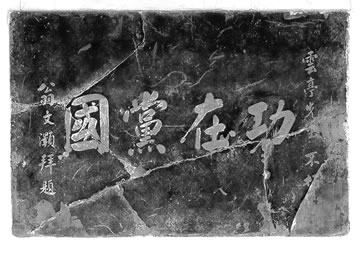 雲亭先
不
功在黨國
翁文灝拜題